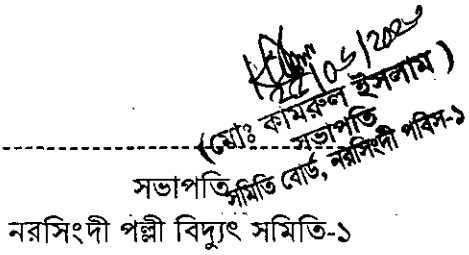 (মোঃ কামরুল ইসলাম)
সভাপতি
সমিতি বোর্ড, নরসিংদী পবিস-১
সভাপতি
নরসিংদী পল্লী বিদ্যুৎ সমিতি-১